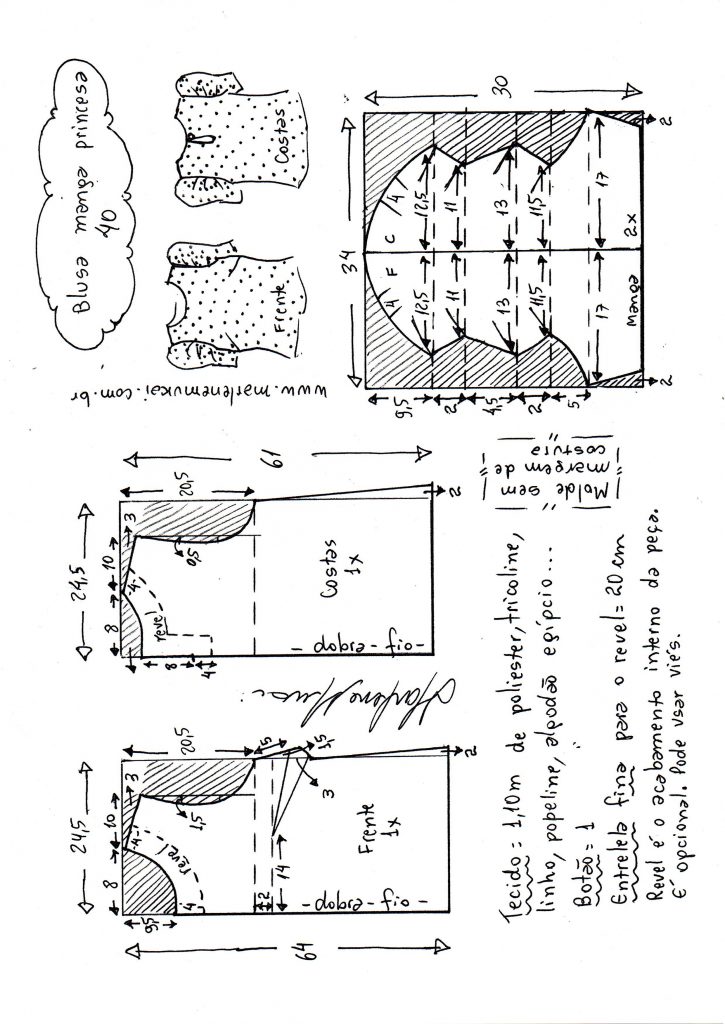 Blusa manga princesa
40
Frente
Costas
www.marlenemukai.com.br
34
30
4
4
F
C
12,5
12,5
11
11
13
13
11,5
11,5
17
17
Manga
2x
9,5
2
4,5
2
5
2
2
24,5
61
8
10
3
20,5
4
0,5
revel
8
4
Costas
1x
dobra-fio-
2
Molde sem
margem de
costura
24,5
64
8
10
3
20,5
9,5
4
4
revel
1,5
5
1,5
3
2
14
Frente
1x
dobra-fio-
2
Tecido = 1,10m de poliester, tricoline,
linho, popeline, algodão egípcio...
Botão = 1
Entretela fina para o revel = 20 cm
Revel é o acabamento interno da peça.
É opcional. Pode usar viés.